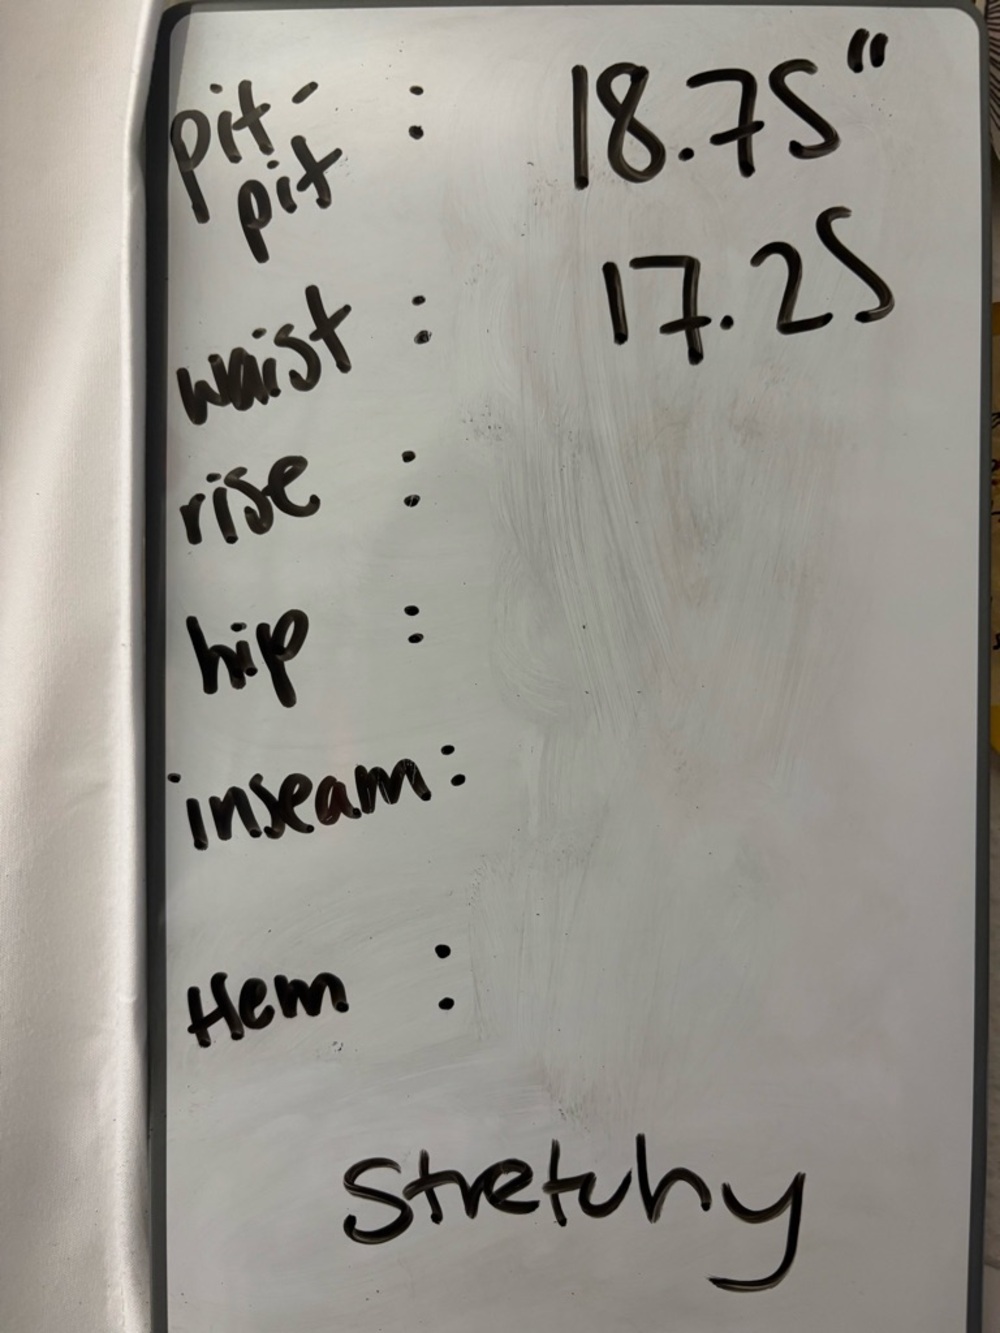 pit-pit : 18.75"
waist : 17.25
rise :
hip :
inseam:
Hem :
Stretchy